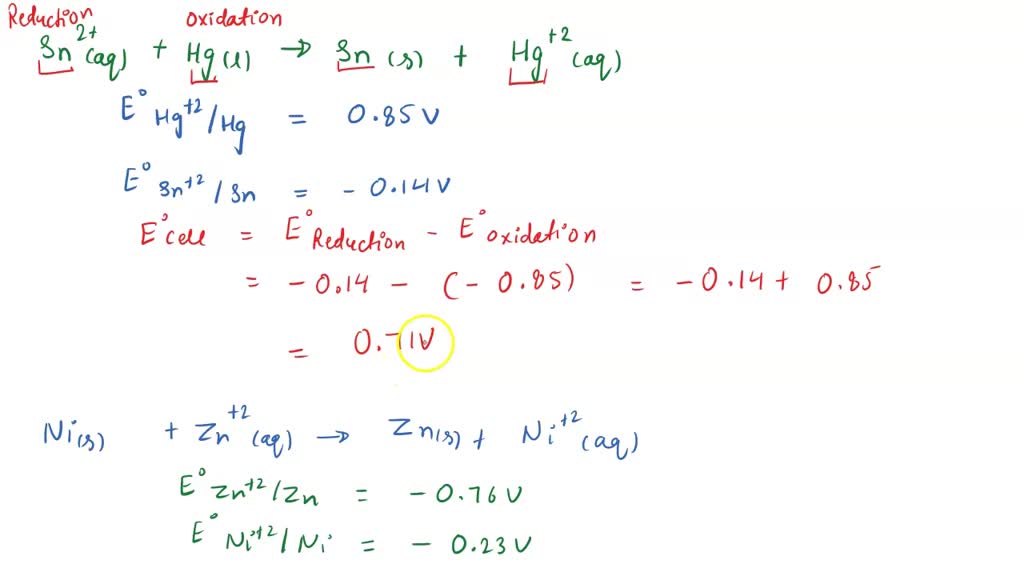 Reduction oxidation
Sn²⁺(aq) + Hg(l) → Sn(s) + Hg⁺²(aq)
E° Hg⁺²/Hg = 0.85 V
E° Sn⁺²/Sn = - 0.14 V
E°cell = E°Reduction - E°oxidation
= - 0.14 - (- 0.85) = - 0.14 + 0.85
= 0.71 V
Ni(s) + Zn⁺²(aq) → Zn(s) + Ni⁺²(aq)
E° Zn⁺²/Zn = - 0.76 V
E° Ni⁺²/Ni = - 0.23 V